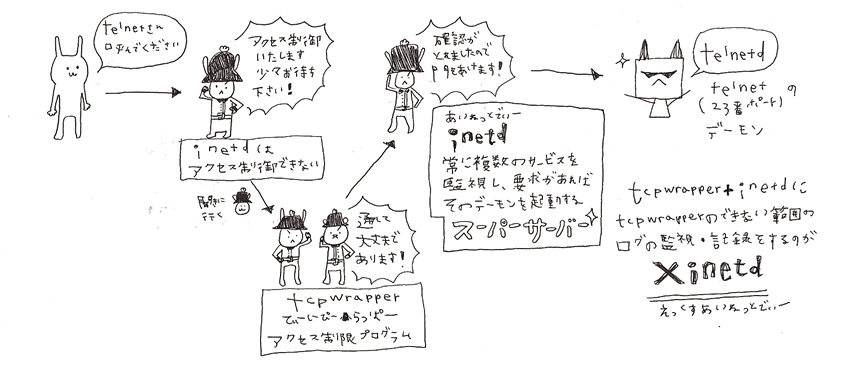 telnetさん
呼んでください
アクセス制御
いたします
少々お待ち
下さい!
inetdは
アクセス制御できない
聞きに
行く
通して
大丈夫で
あります!
tcpwrapper
てぃーしーぴーらっぱー
アクセス制限プログラム
確認が
とれましたので
門をあけます!
あいねっとでぃー
inetd
常に複数のサービスを
監視し、要求があれば
そのデーモンを起動する
スーパーサーバー
telnetd
telnet
(23番ポート)の
デーモン
tcpwrapper+inetdに
tcpwrapperのできない範囲の
ログの監視・記録をするのが
xinetd
えっくすあいねっとでぃー